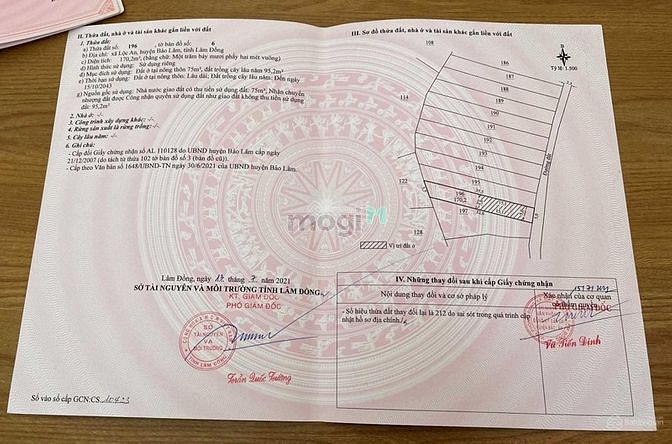 II. Thửa đất, nhà ở và tài sản khác gắn liền với đất
1. Thửa đất:
a) Thửa đất số: 196 , tờ bản đồ số: 6
b) Địa chỉ: xã Lộc An, huyện Bảo Lâm, tỉnh Lâm Đồng
c) Diện tích: 170,2m², (bằng chữ: Một trăm bảy mươi phẩy hai mét vuông)
d) Hình thức sử dụng: Sử dụng riêng
đ) Mục đích sử dụng: Đất ở tại nông thôn 75m², đất trồng cây lâu năm 95,2m²
e) Thời hạn sử dụng: Đất ở tại nông thôn: Lâu dài; Đất trồng cây lâu năm: Đến ngày
15/10/2043
g) Nguồn gốc sử dụng: Nhà nước giao đất có thu tiền sử dụng đất: 75m², Nhận chuyển
nhượng đất được Công nhận quyền sử dụng đất như giao đất không thu tiền sử dụng
đất: 95,2m²
2. Nhà ở: -/-
3. Công trình xây dựng khác: -/-
4. Rừng sản xuất là rừng trồng: -/-
5. Cây lâu năm: -/-
6. Ghi chú:
- Cấp đổi Giấy chứng nhận số AL 110128 do UBND huyện Bảo Lâm cấp ngày
21/12/2007 (do tách từ thửa 102 tờ bản đồ số 3 (bản đồ cũ)).
- Cấp theo Văn bản số 1648/UBND-TN ngày 30/6/2021 của UBND huyện Bảo Lâm.
Lâm Đồng, ngày tháng 7 năm 2021
SỞ TÀI NGUYÊN VÀ MÔI TRƯỜNG TỈNH LÂM ĐỒNG
KT. GIÁM ĐỐC
PHÓ GIÁM ĐỐC
SỞ
TÀI NGUYÊN
VÀ
MÔI TRƯỜNG
TỈNH LÂM ĐỒNG
Trần Quốc Trường
Số vào sổ cấp GCN:CS
III. Sơ đồ thửa đất, nhà ở và tài sản khác gắn liền với đất
Tỷ lệ 1:500
108
186
187
188
189
190
191
192
193
194
195
196
170,2
197
114
122
128
Đường đất
Vị trí đất ở
mogi
IV. Những thay đổi sau khi cấp Giấy chứng nhận
Nội dung thay đổi và cơ sở pháp lý
Xác nhận của cơ quan
có thẩm quyền
- Số hiệu thửa đất thay đổi lại là 212 do sai sót trong quá trình cập
nhật hồ sơ địa chính./.
GIÁM ĐỐC
Vũ Tiến Định